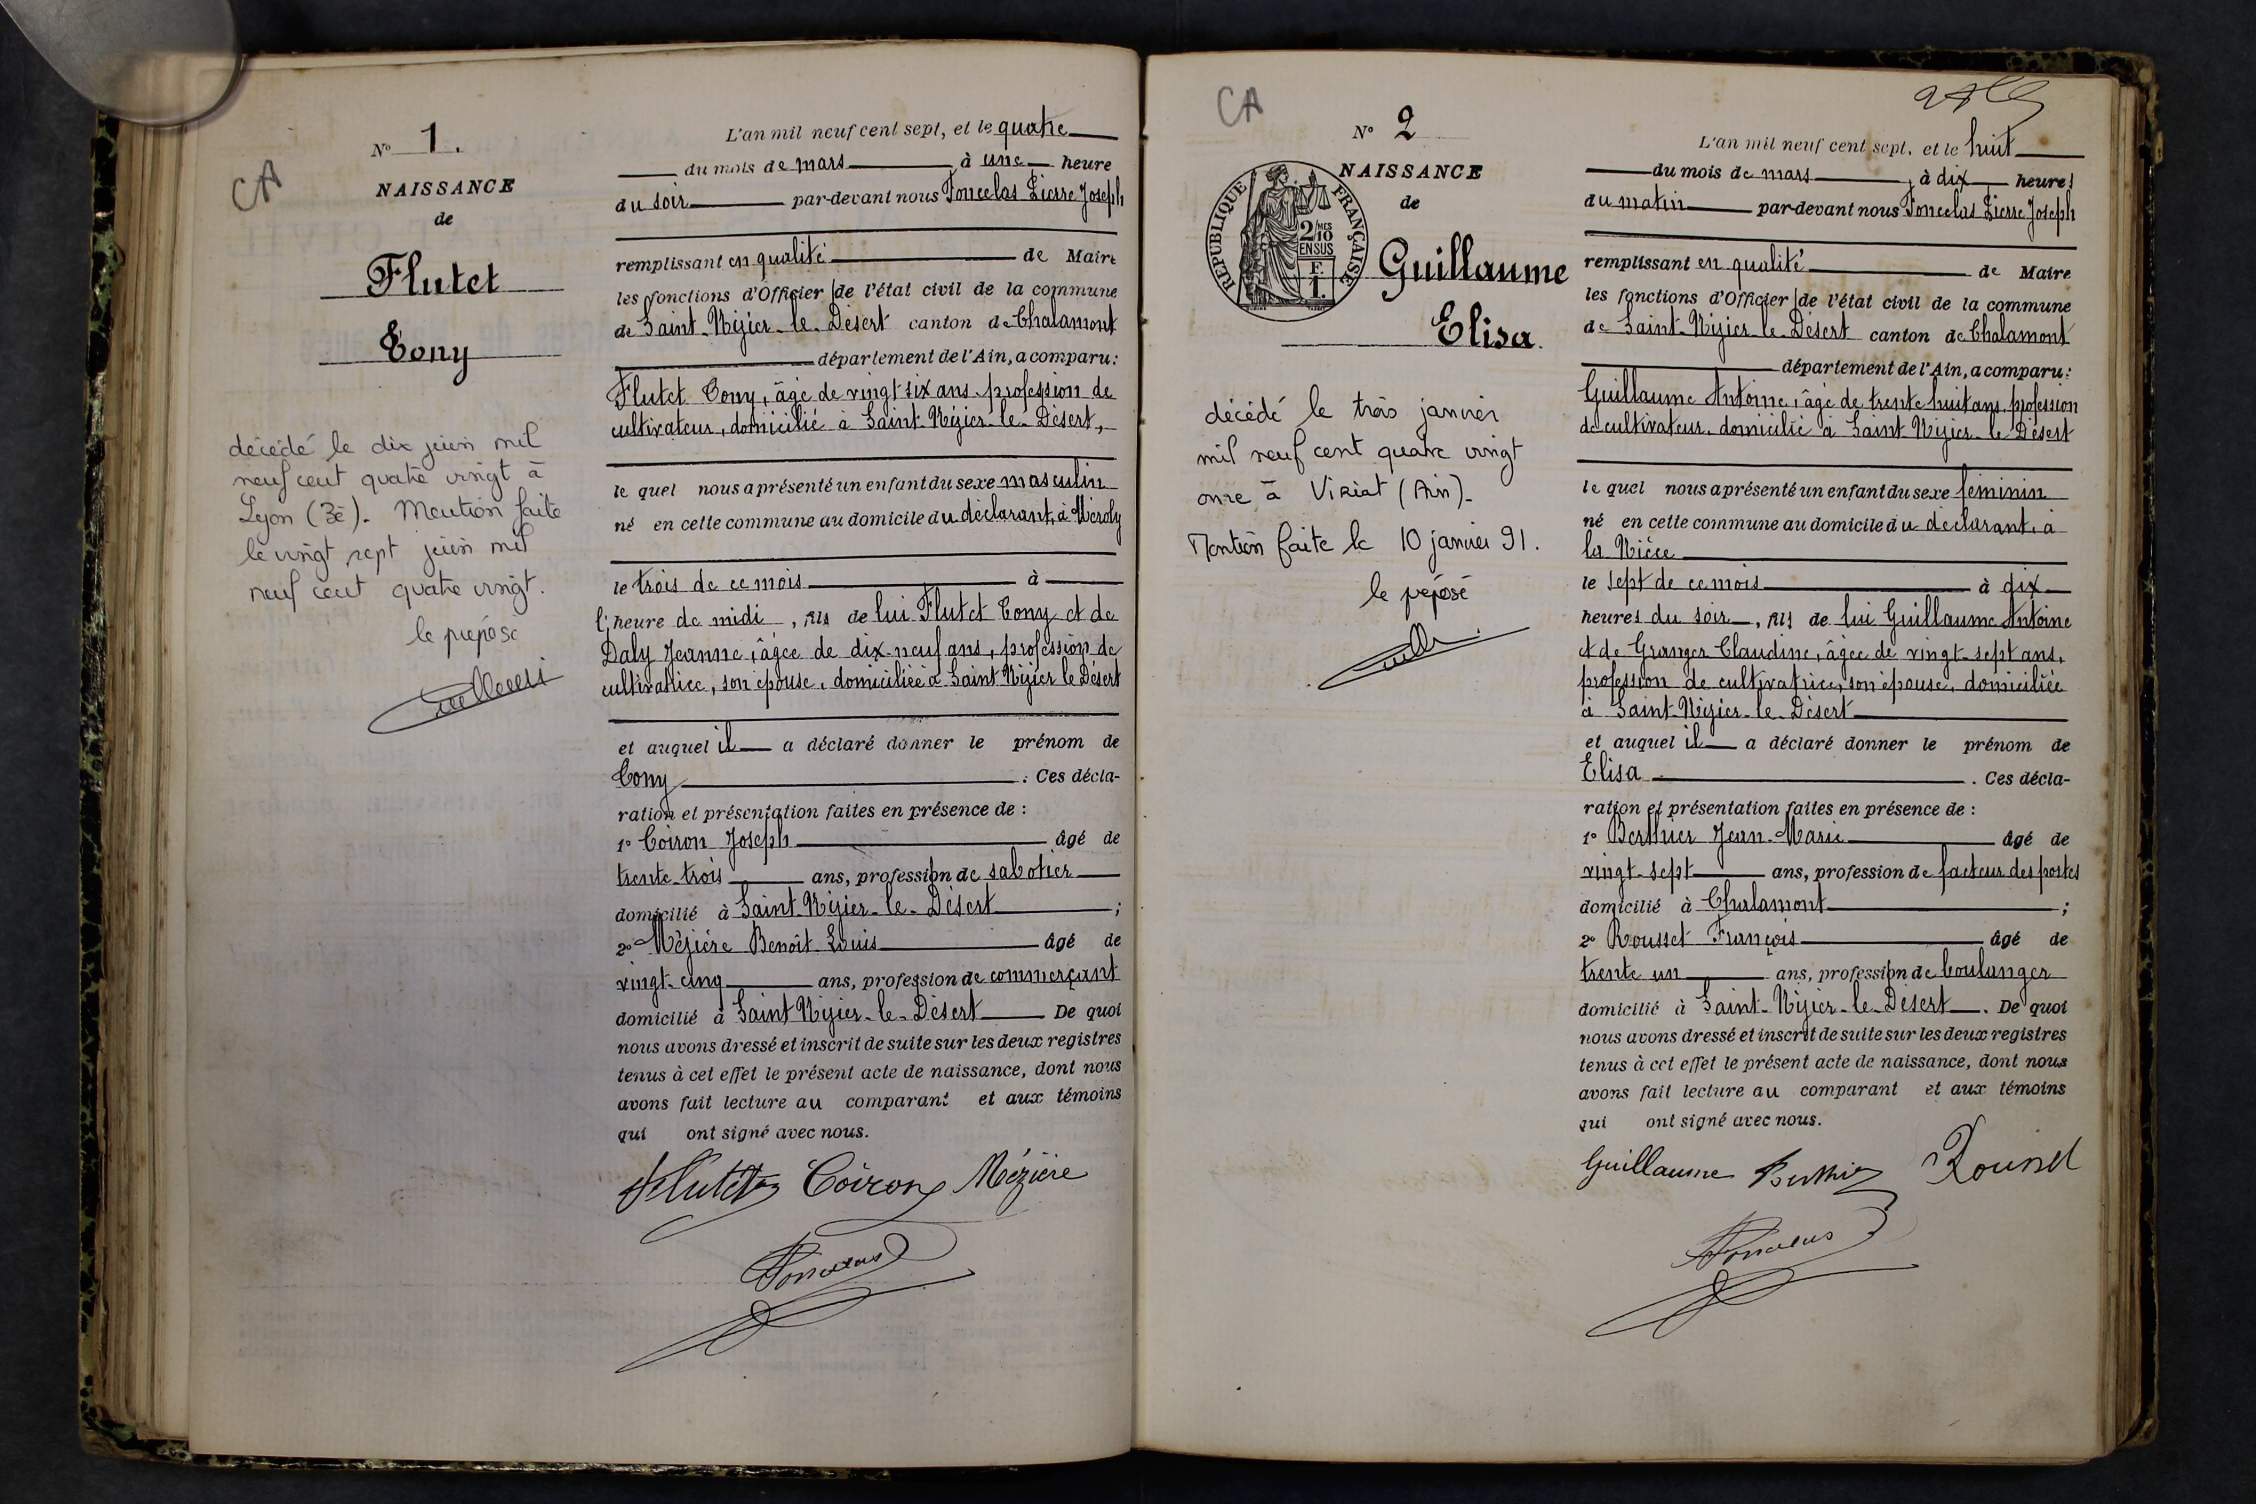 CA
N° 1.
NAISSANCE
de
Flutet
Tony
décédé le dix juin mil
neuf cent quatre vingt à
Lyon (3è). Mention faite
le vingt sept juin mil
neuf cent quatre vingt.
le préposé
L'an mil neuf cent sept, et le quatre
du mois de mars à une heure
du soir par-devant nous Poncelas Pierre Joseph
remplissant en qualité de Maire
les fonctions d'Officier de l'état civil de la commune
de Saint-Nizier-le-Désert canton de Chalamont
département de l'Ain, a comparu:
Flutet Tony, âgé de vingt six ans profession de
cultivateur, domicilié à Saint-Nizier-le-Désert,
le quel nous a présenté un enfant du sexe masculin
né en cette commune au domicile du déclarant, à
le trois de ce mois à
l'heure de midi, fils de lui Flutet Tony et de
Daly Jeanne, âgée de dix-neuf ans, profession de
cultivatrice, son épouse, domiciliée à Saint Nizier le Désert
et auquel il a déclaré donner le prénom de
Tony . Ces décla-
ration et présentation faites en présence de :
1° Coiron Joseph âgé de
trente-trois ans, profession de sabotier
domicilié à Saint-Nizier-le-Désert ;
2° Mézière Benoît Louis âgé de
vingt-cinq ans, profession de commerçant
domicilié à Saint Nizier-le-Désert De quoi
nous avons dressé et inscrit de suite sur les deux registres
tenus à cet effet le présent acte de naissance, dont nous
avons fait lecture au comparant et aux témoins
qui ont signé avec nous.
Flutet Coiron Mézière
Poncelas
CA
N° 2
NAISSANCE
de
RÉPUBLIQUE FRANÇAISE
2/10 MES
EN SUS
F.
1.
Guillaume
Elisa.
décédé le trois janvier
mil neuf cent quatre vingt
onze à Viriat (Ain).
Mention faite le 10 janvier 91.
le préposé
L'an mil neuf cent sept, et le huit
du mois de mars, à dix heures
du matin par-devant nous Poncelas Pierre Joseph
remplissant en qualité de Maire
les fonctions d'Officier de l'état civil de la commune
de Saint-Nizier-le-Désert canton de Chalamont
département de l'Ain, a comparu:
Guillaume Antoine, âgé de trente huit ans, profession
de cultivateur, domicilié à Saint Nizier-le-Désert
le quel nous a présenté un enfant du sexe féminin
né en cette commune au domicile du déclarant, à
la Nièce
le sept de ce mois à dix
heures du soir, fils de lui Guillaume Antoine
et de Granger Claudine, âgée de vingt-sept ans,
profession de cultivatrice, son épouse, domiciliée
à Saint-Nizier-le-Désert
et auquel il a déclaré donner le prénom de
Elisa . Ces décla-
ration et présentation faites en présence de :
1° Berthier Jean-Marie âgé de
vingt-sept ans, profession de facteur des postes
domicilié à Chalamont ;
2° Rousset François âgé de
trente un ans, profession de boulanger
domicilié à Saint-Nizier-le-Désert. De quoi
nous avons dressé et inscrit de suite sur les deux registres
tenus à cet effet le présent acte de naissance, dont nous
avons fait lecture au comparant et aux témoins
qui ont signé avec nous.
Guillaume Berthier Rousset
Poncelas